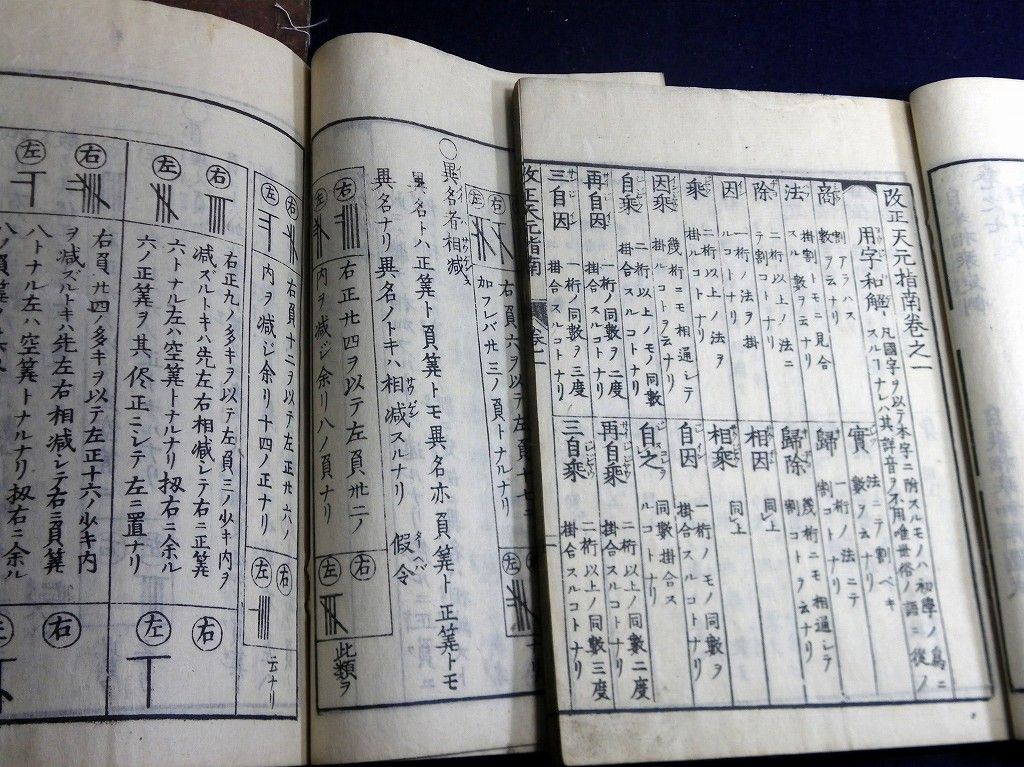 改正天元指南卷之一
用字和解
凡國字ヲ以テ本字ニ附スルモノハ初學ノ爲ニ
スルコナレハ其詳音ヲ不用唯世俗ノ語ニ從ノ
割アラハス
商
數ヲ云ナリ
掛割トモニ見合
法
スル數ヲ云ナリ
二桁以上ノ法ニ
除
テ割コトナリ
一桁ノ法ヲ掛
因
ルコトナリ
二桁以上ノ法ヲ
乘
掛ルコトナリ
幾桁ニモ相通レテ
因乘
掛ルコトヲ云ナリ
二桁以上ノモノ同數
自乘
掛合スルコトナリ
一桁ノ同數ヲ二度
再自因
掛合スルコトナリ
一桁ノ同數ヲ三度
三自因
掛合スルコトナリ
實
法ニテ割ベキ
數ヲ云ナリ
歸
一桁ノ法ニテ
割コトナリ
歸除
幾桁ニモ相通レテ
割コトヲ云ナリ
相因
同上
相乘
同上
自因
一桁ノモノ同數ヲ
掛合スルコトナリ
自之
同數掛合ス
ルコトナリ
再自乘
二桁以上ノ同數二度
掛合スルコトナリ
三自乘
二桁以上ノ同數三度
掛合スルコトナリ
改正天元指南
卷一
右
左
右負六ヲ以テ左負十七ニ
加フレバ廿三ノ負トナルナリ
右
左
○異名者相減
異名トハ正筭ト負筭トモ異名亦負筭ト正筭トモ
異名ナリ異名ノトキハ相減スルナリ
假令
右
左
右正廿四ヲ以テ左負卅二ノ
内ヲ減ジ余リ八ノ負ナリ
右
左
此類ヲ
右
左
右負十二ヲ以テ左正廿六ノ
内ヲ減ジ余リ十四ノ正ナリ
右
左
云ナリ
右
左
右正九ノ多キヲ以テ左負三ノ少キ内ヲ
減ズルトキハ先左右相減レテ右ニ正筭
六トナル左ハ空筭トナルナリ扨右ニ余ル
六ノ正筭ヲ其侭正ニレテ左ニ置ナリ
右
左
右
左
右負廿四ノ多キヲ以テ左正十六ノ少キ内
ヲ減ズルトキハ先左右相減レテ右ニ負筭
八トナル左ハ空筭トナルナリ扨右ニ余ル
右